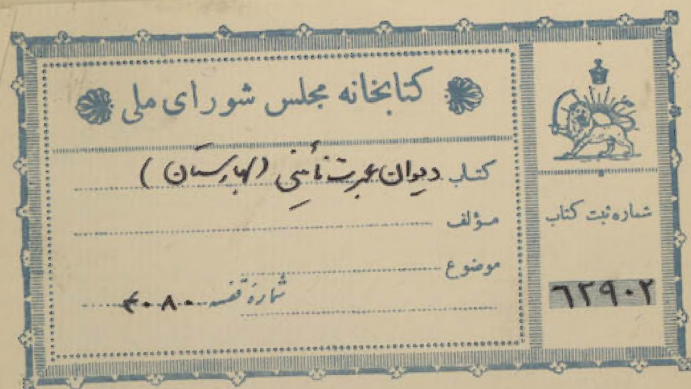 کتابخانه مجلس شورای ملی
کتاب دیوان عبرت نائینی (بهارستان)
مؤلف
موضوع
شمارهٔ قفسه ۴۰۸۰
شماره ثبت کتاب
٦٢٩٠٢